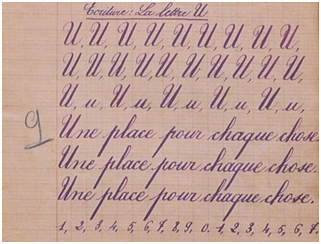 Ecriture: La lettre U
U, U, U, U, U, U, U, U, U,
U, U, U, U, U, U, U, U, U,
U, u, U u, U u, U u, U, u,
Une place pour chaque chose.
Une place pour chaque chose.
Une place pour chaque chose.
1, 2, 3, 4, 5, 6, 7, 8, 9, 0. 1, 2, 3, 4, 5, 6, 7.
9